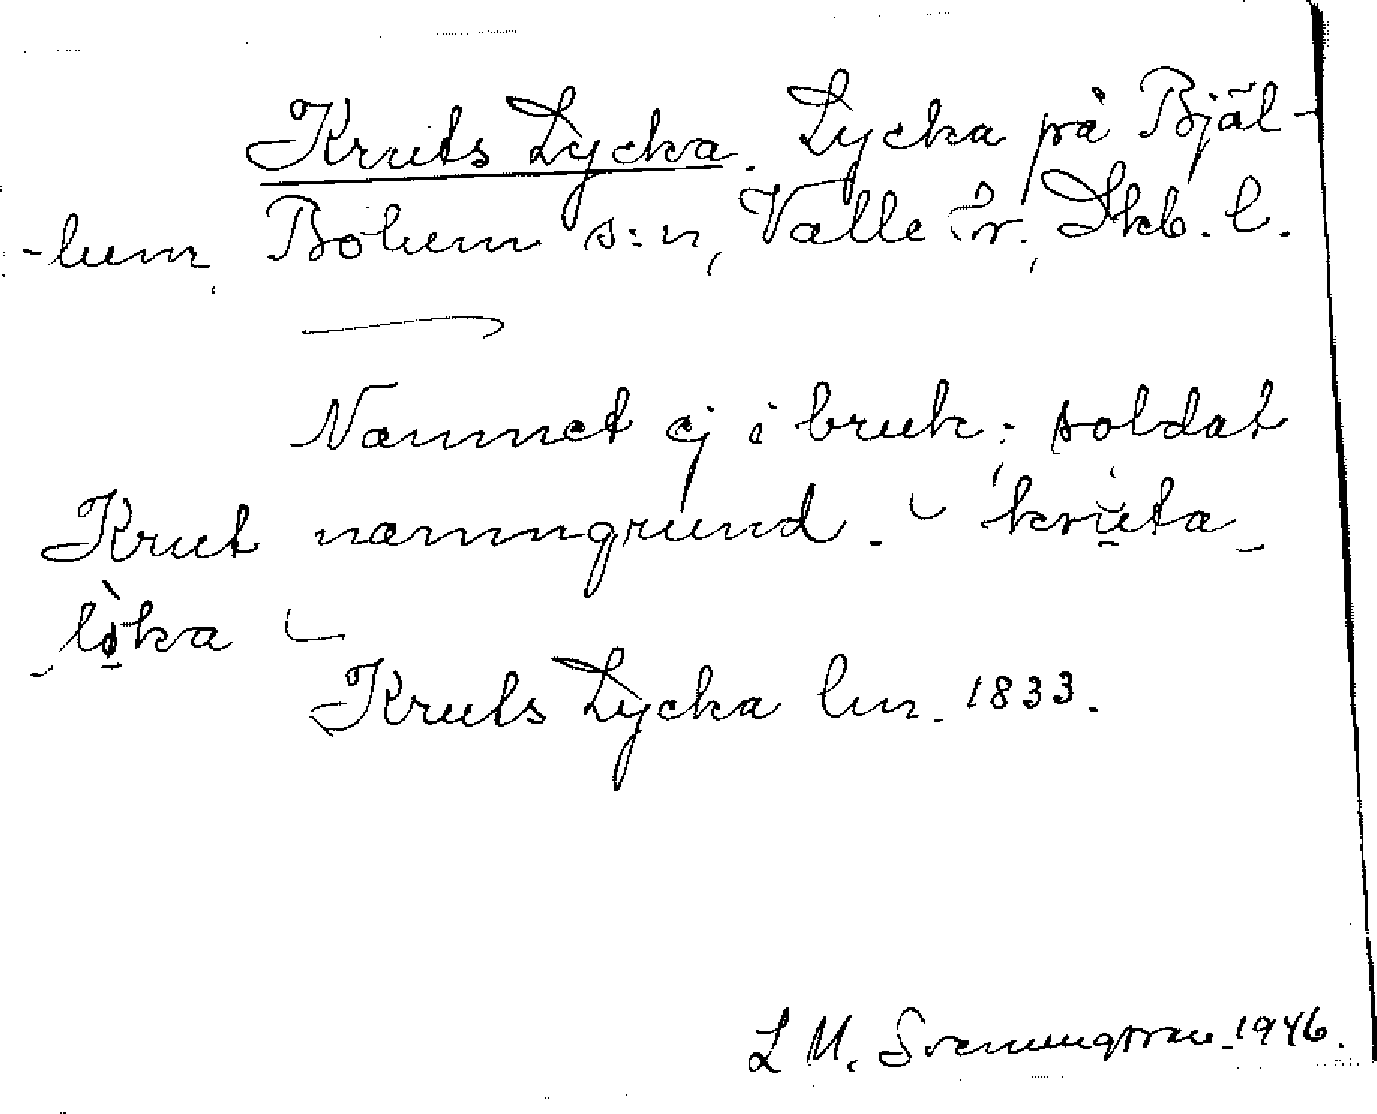 Kruts Lycka. Lycka på Bjäl-
-lum, Bolum s:n, Valle hr, Skb. l.
Namnet ej i bruk; soldat
Krut namngrund. ‿ kruta_
_lo̱̊ka ‿
Kruts Lycka lm. 1833.
L M. Svenungsson. 1946.